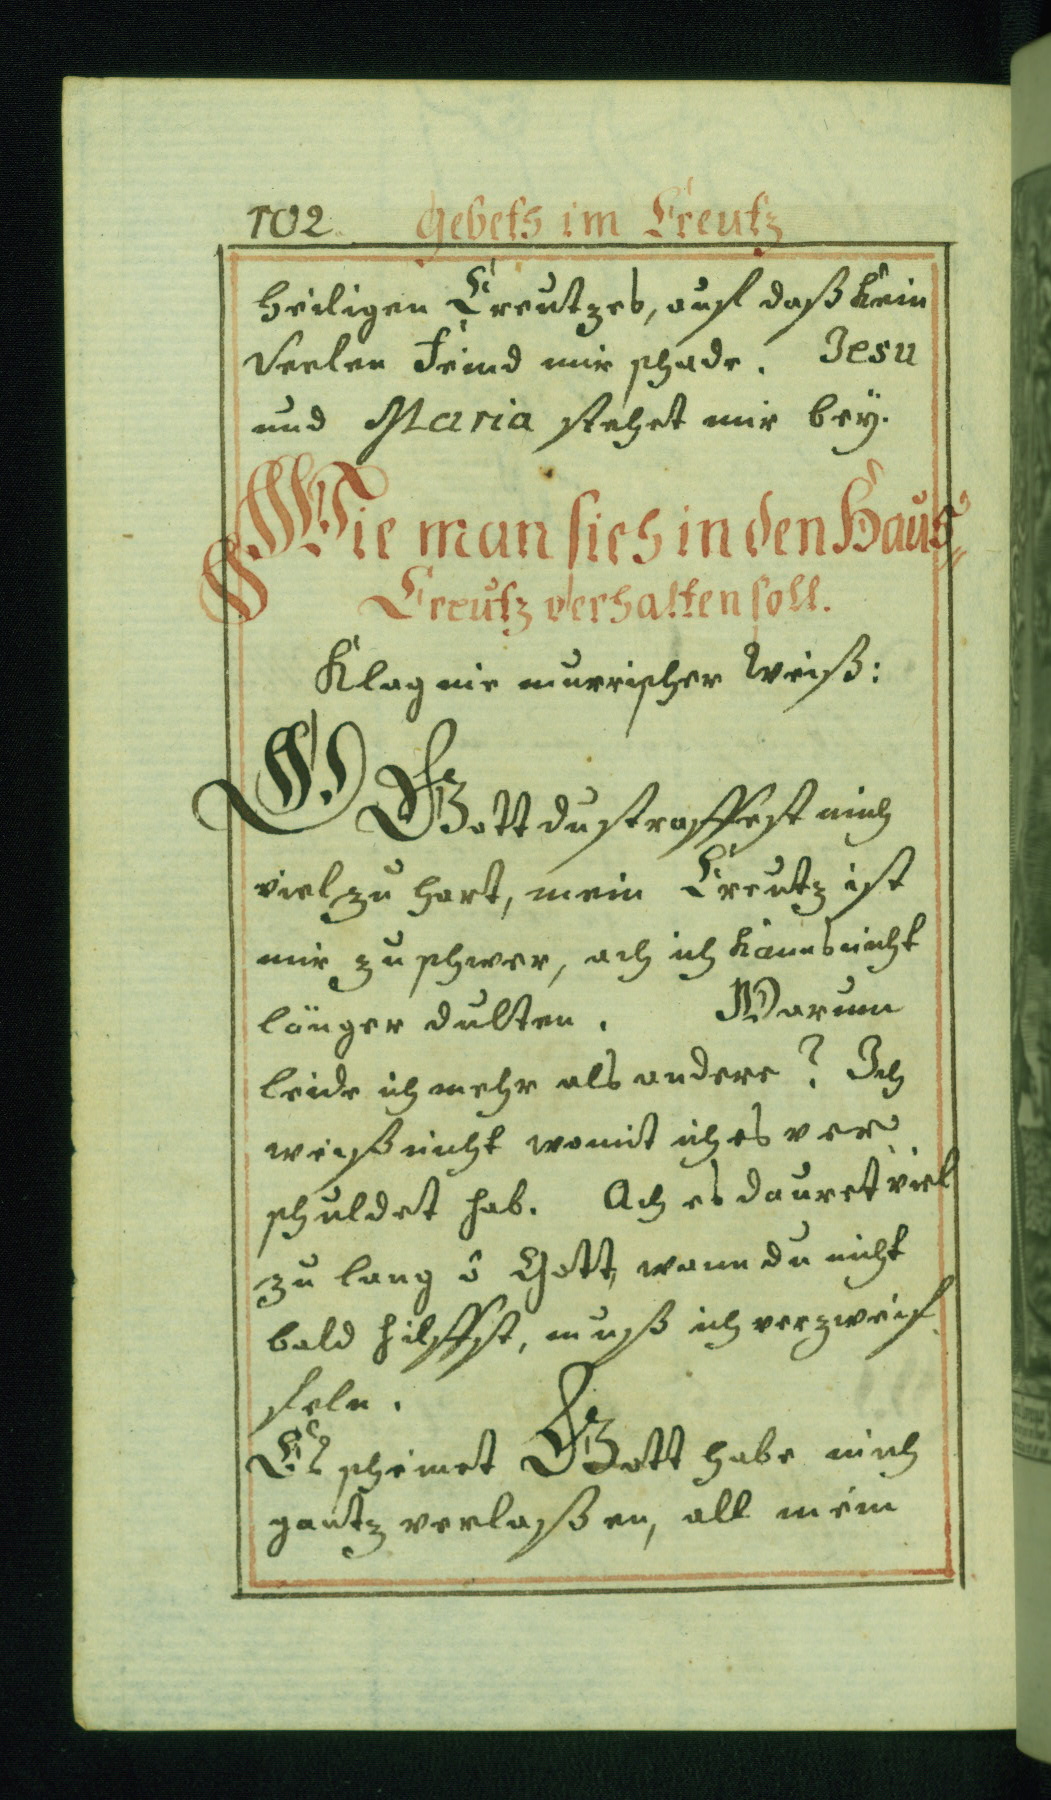 102 Gebets im Creutz
heiligen Creutzes, auf daß kein
Seelen Feind mir schade. Jesu
und Maria stehet mir beÿ.
Wie man sich in den Hauß=
Creutz verhalten soll.
Klag nie murrischer Weiß:
O Gott du straffest mich
viel zu hart, mein Creutz ist
mir zu schwer, ach ich kanns nicht
länger dulten. Warum
leide ich mehr als andere? Ich
weiß nicht womit ich es ver
schuldet hab. Ach es dauret viel
zu lang ô Gott, wann du nicht
bald hilffst, muß ich verzweif
feln.
Es scheinet Gott habe mich
gantz verlaßen, all mein